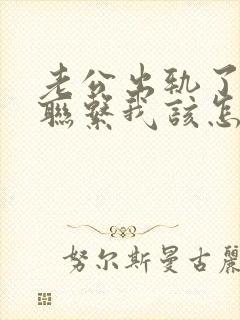 老公出轨了
聯繫我該怎
努尔斯曼古麗